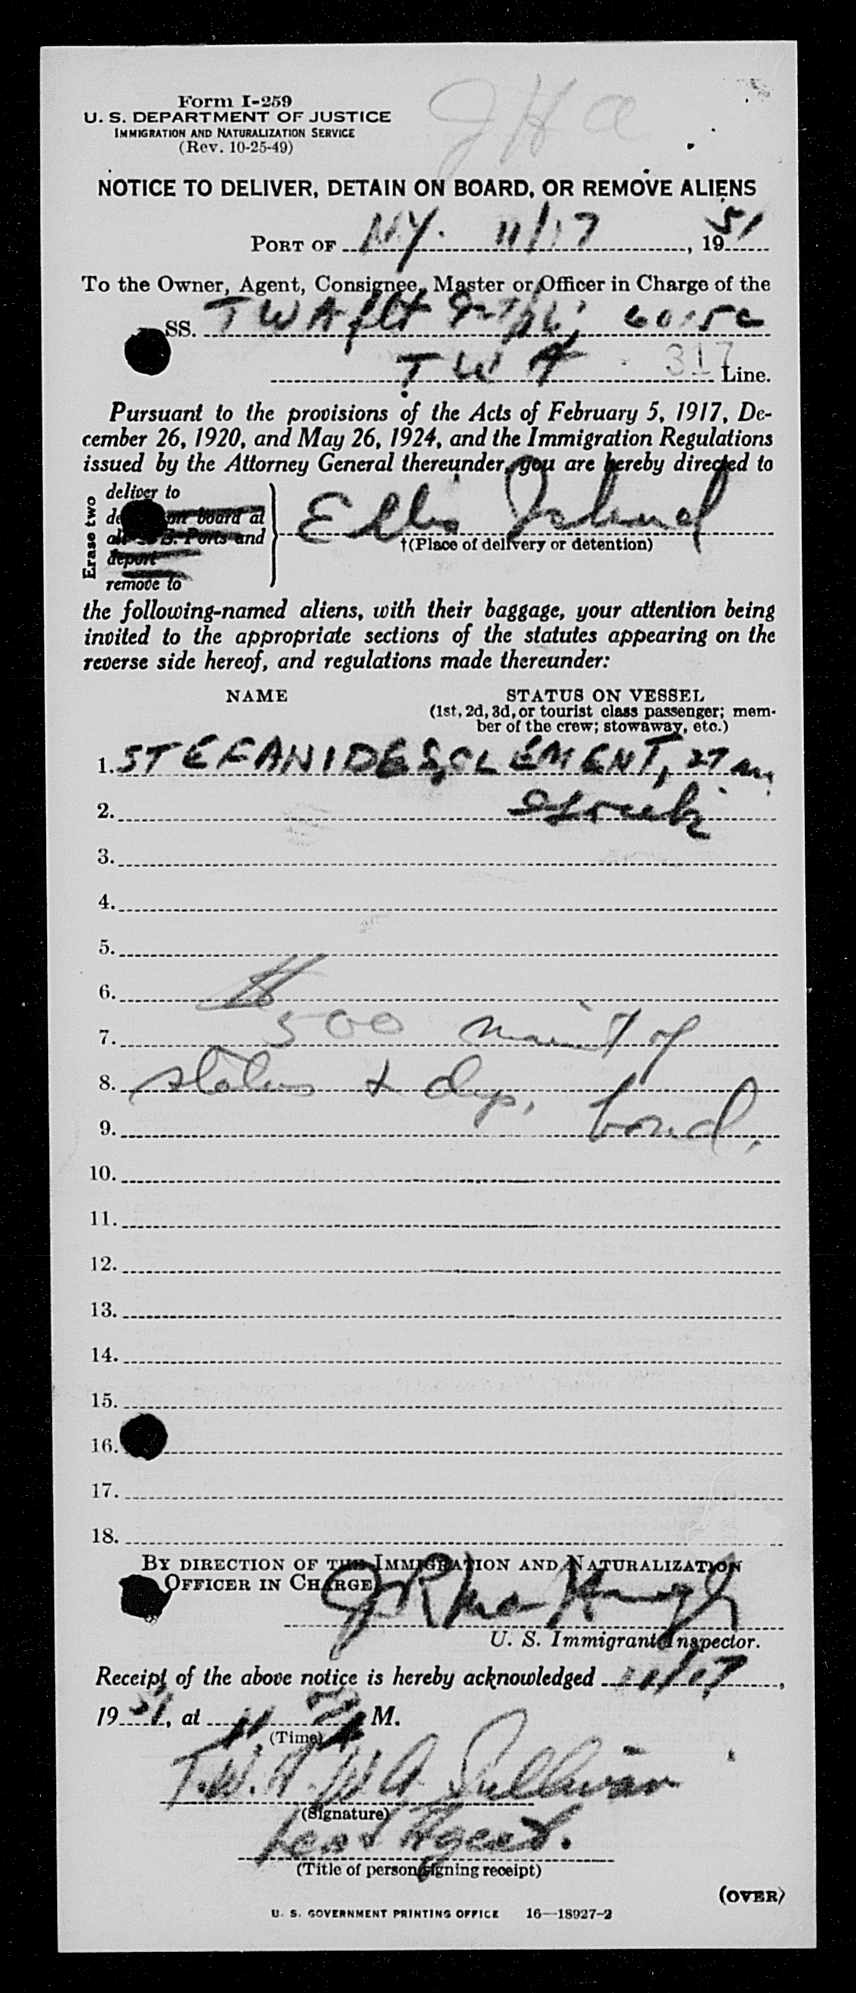 Form I-259
U. S. DEPARTMENT OF JUSTICE
IMMIGRATION AND NATURALIZATION SERVICE
(Rev. 10-25-49)
NOTICE TO DELIVER, DETAIN ON BOARD, OR REMOVE ALIENS
PORT OF N.Y. 11/17, 1951
To the Owner, Agent, Consignee, Master or Officer in Charge of the
SS. TWA flt
TWA 317 Line.
Pursuant to the provisions of the Acts of February 5, 1917, De-
cember 26, 1920, and May 26, 1924, and the Immigration Regulations
issued by the Attorney General thereunder, you are hereby directed to
Erase two
deliver to
on board at
Ports and
deport
remove to
Ellis Island
†(Place of delivery or detention)
the following-named aliens, with their baggage, your attention being
invited to the appropriate sections of the statutes appearing on the
reverse side hereof, and regulations made thereunder:
NAME STATUS ON VESSEL
(1st, 2d, 3d, or tourist class passenger; mem-
ber of the crew; stowaway, etc.)
1. STEFANIDES, CLEMENT, 27 m,
2.
3.
4.
5.
6.
7. $500 maint of
8. status & dep. bond.
9.
10.
11.
12.
13.
14.
15.
16.
17.
18.
BY DIRECTION OF THE IMMIGRATION AND NATURALIZATION
OFFICER IN CHARGE
U. S. Immigrant Inspector.
Receipt of the above notice is hereby acknowledged 11/17,
1951, at 11 M.
(Time)
T.W.A. W A Sullivan
(Signature)
Agent.
(Title of person signing receipt)
(OVER)
U. S. GOVERNMENT PRINTING OFFICE 16—18927-2